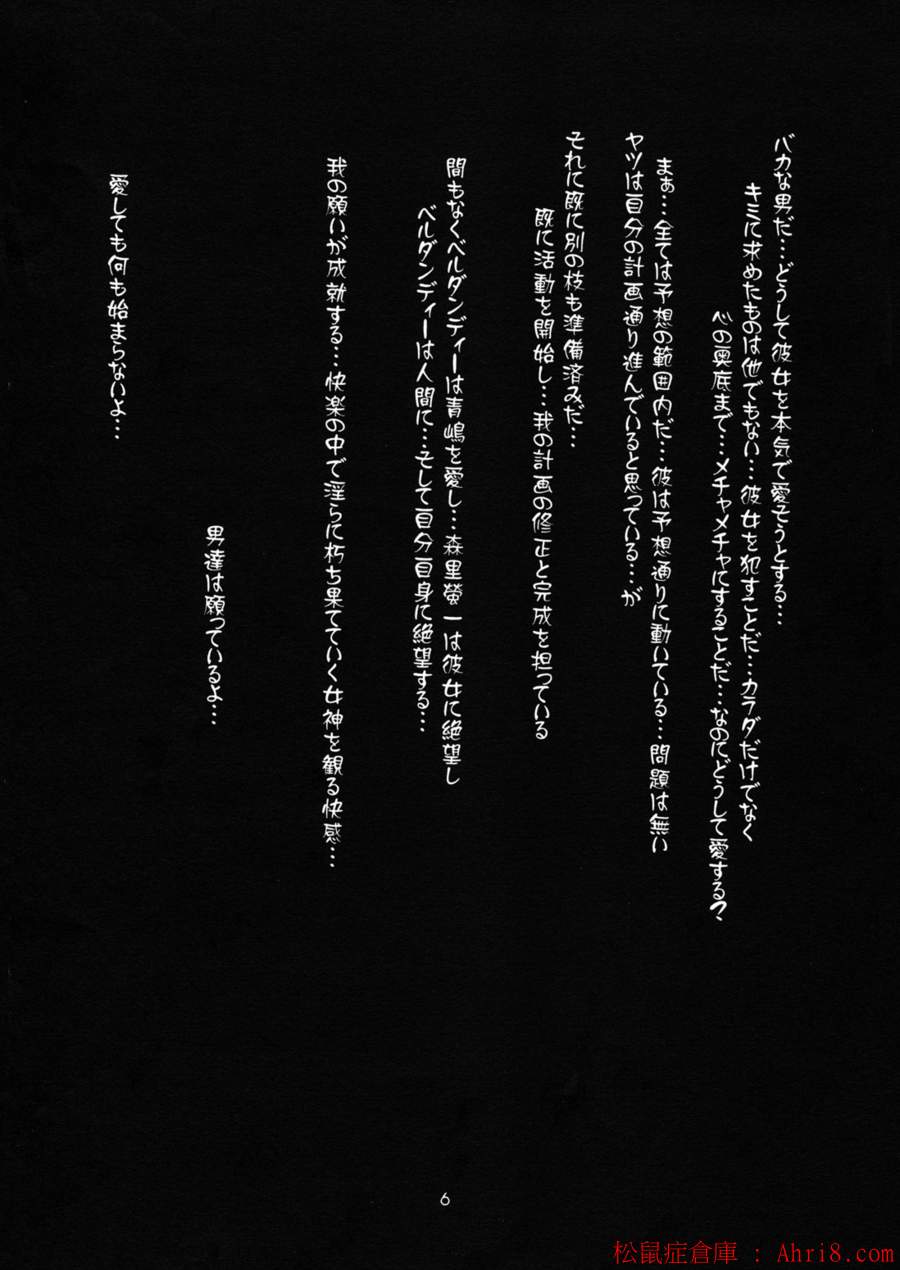 バカな男だ…どうして彼女を本気で愛そうとする…
キミに求めたものは他でもない…彼女を犯すことだ…カラダだけでなく
心の奥底まで…メチャメチャにすることだ…なのにどうして愛する？
まぁ…全ては予想の範囲内だ…彼は予想通りに動いている…問題は無い
ヤツは自分の計画通り進んでいると思っている…が
それに既に別の枝も準備済みだ…
既に活動を開始し…我の計画の修正と完成を担っている
間もなくベルダンディーは青嶋を愛し…森里螢一は彼女に絶望し
ベルダンディーは人間に…そして自分自身に絶望する…
我の願いが成就する…快楽の中で淫らに朽ち果てていく女神を観る快感…
男達は願っているよ…
愛しても何も始まらないよ…
6
松鼠症倉庫 : Ahri8.com